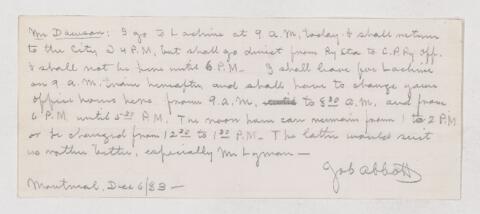 Mr Dawson: I go to Lachine at 9 A.M. today & shall return
to the City 2 4 P.M, but shall go direct from Ry Sta to C.P.Ry Off.
& shall not be here until 6 P.M. I shall leave for Lachine
on 9 A.M. train hereafter, and shall have to change your
office hours here from 9 A.M. to 8 30 A.M, and from
6 P.M. until 5 P.M. The noon hour can remain from 1 to 2 P.M
or be changed from 12 30 to 1 30 P.M. The latter would suit
us rather better, especially Mr Lyman —
Jas Abbott
Montreal, Dec 6/83 —